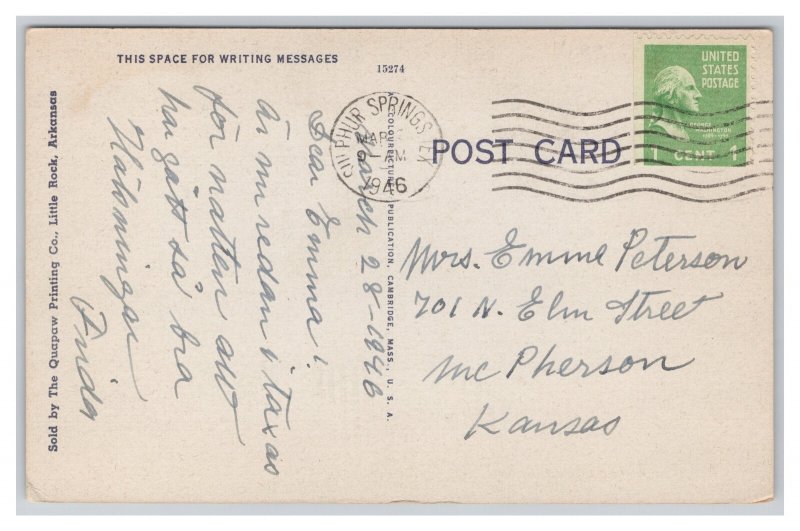 THIS SPACE FOR WRITING MESSAGES
15274
UNITED
STATES
POSTAGE
GEORGE
WASHINGTON
1 CENT 1
SULPHUR SPRINGS, TEX
MAR
9 - AM
1946
POST CARD
March 28-1946
Dear Emma!
är nu redan i taxas
för natten allt
har gått så bra
Hälsningar
Frida
Mrs. Emme Peterson
701 N. Elm Street
Mc Pherson
Kansas
Sold by The Quapaw Printing Co., Little Rock, Arkansas
PUBLICATION, CAMBRIDGE, MASS., U. S. A.